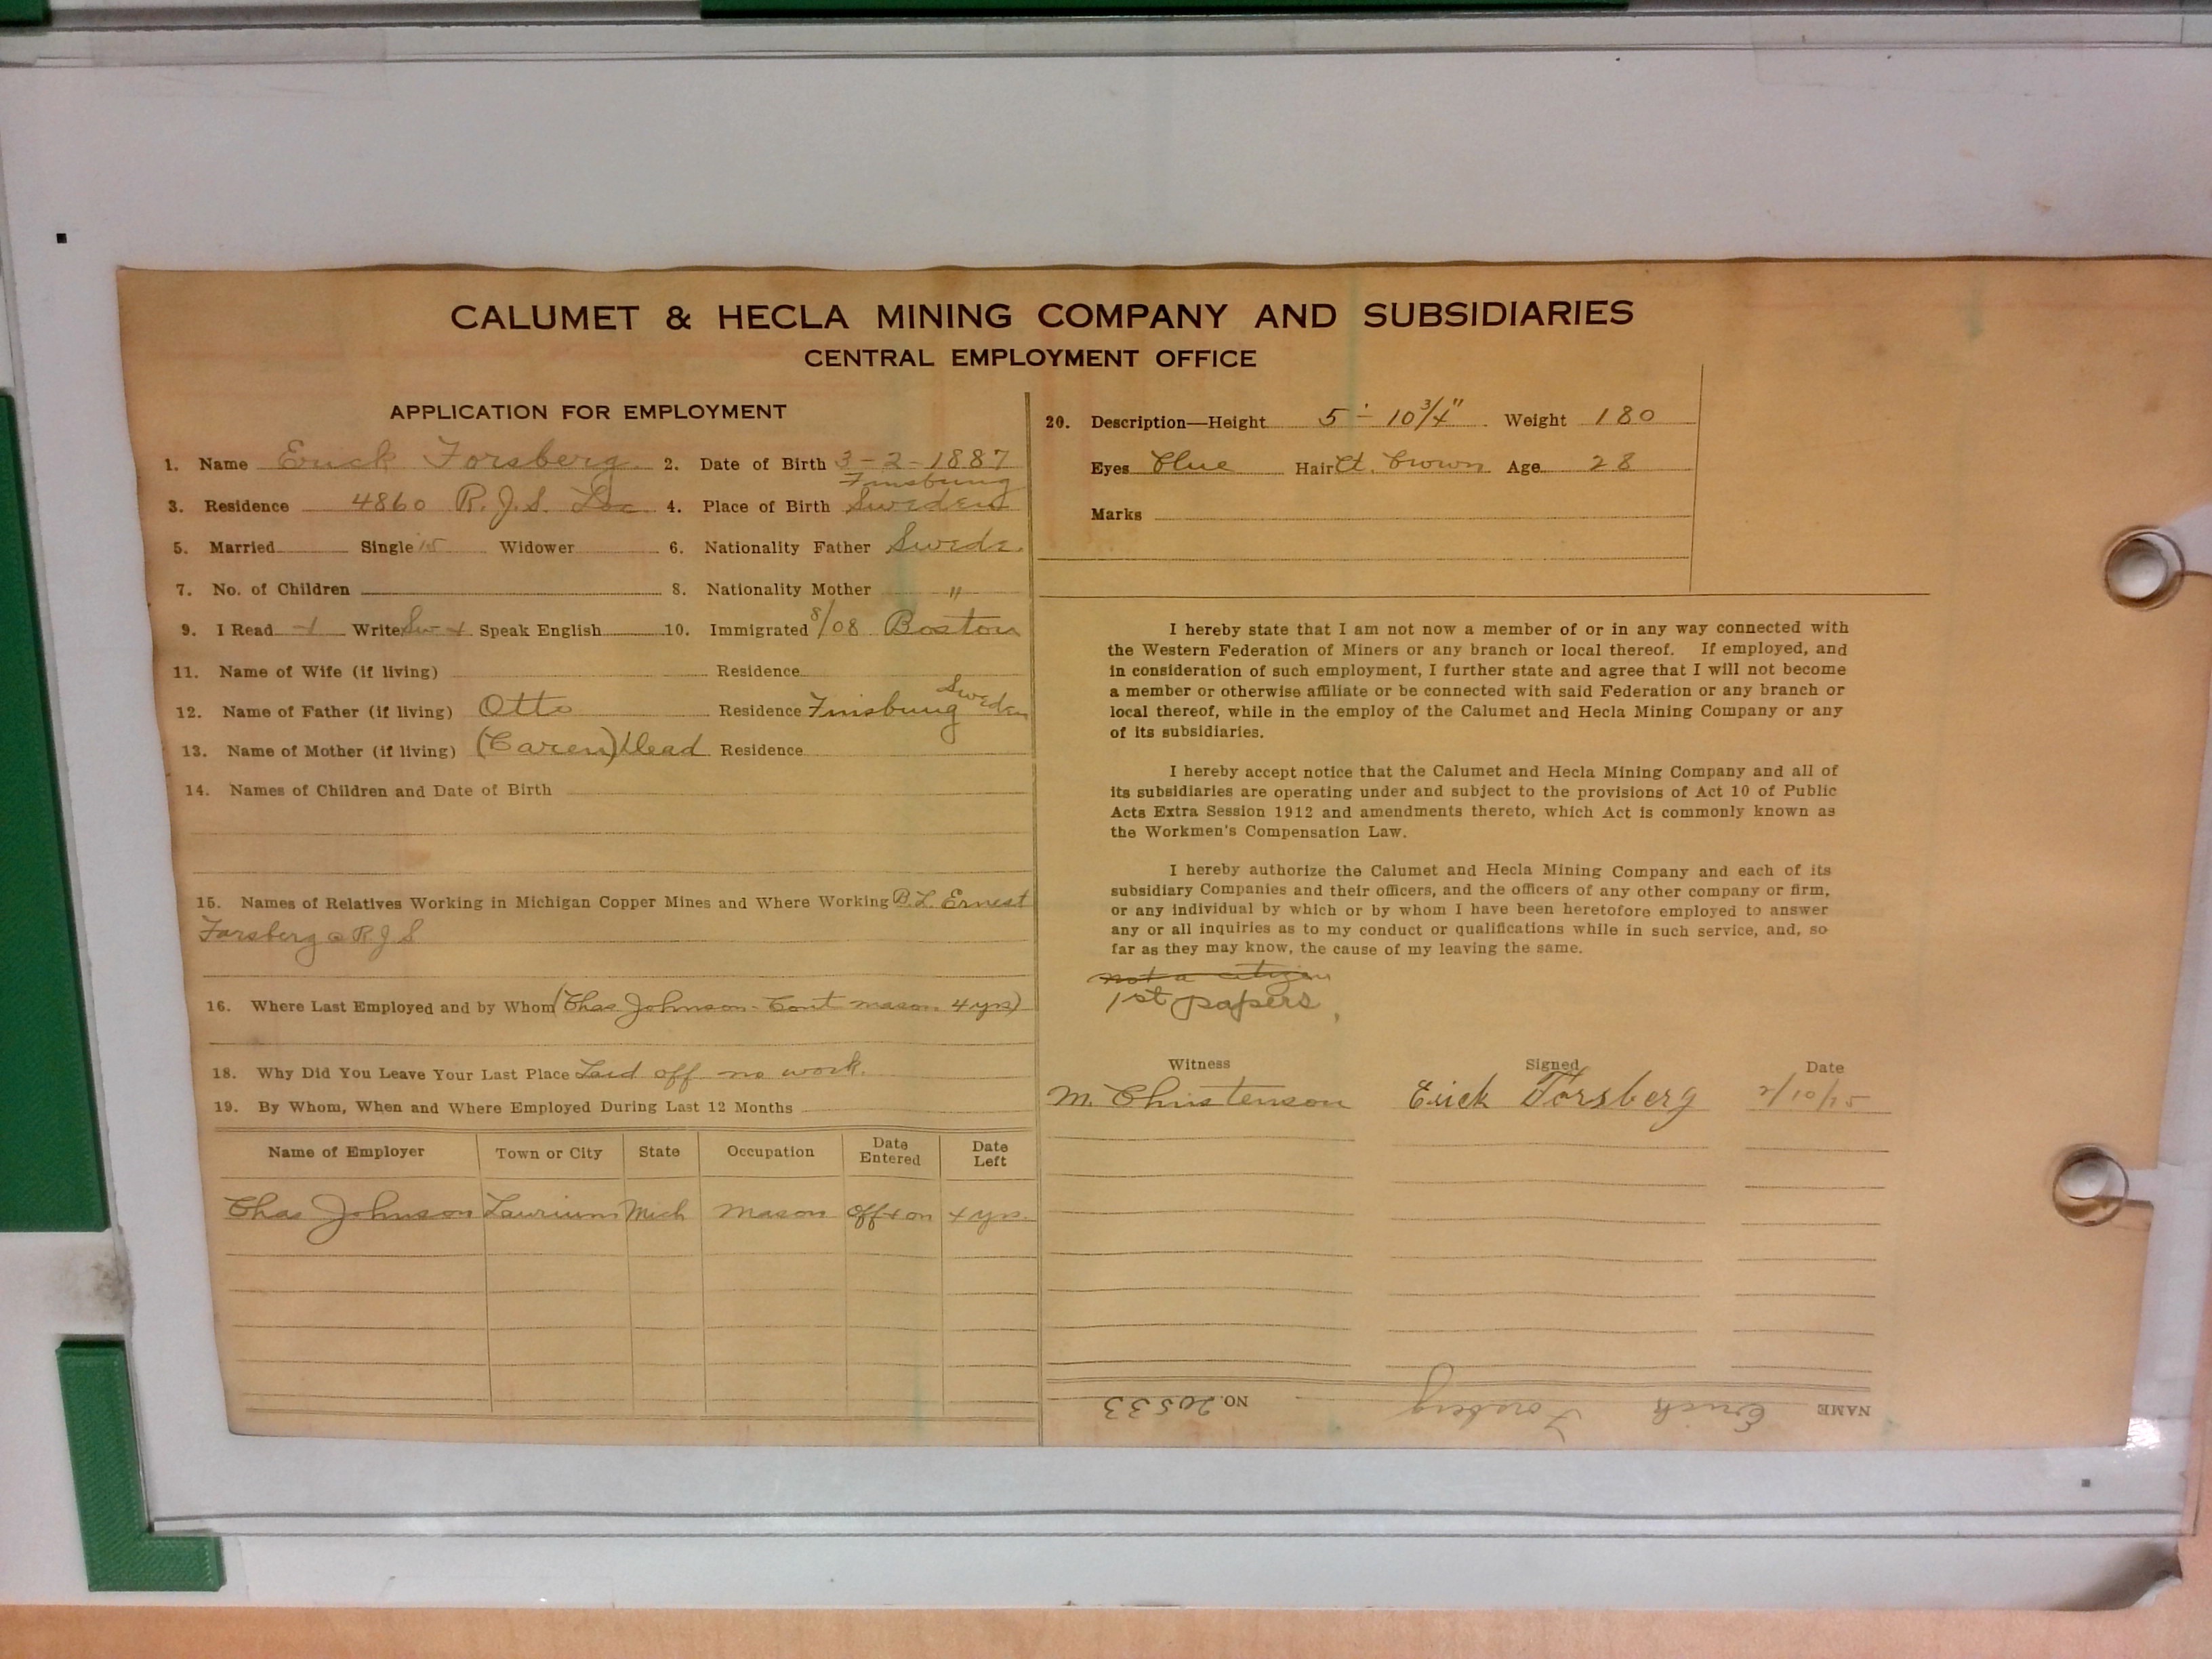 CALUMET & HECLA MINING COMPANY AND SUBSIDIARIES
CENTRAL EMPLOYMENT OFFICE
APPLICATION FOR EMPLOYMENT
1. Name Erick Forsberg 2. Date of Birth 3-2-1887
3. Residence 4860 R.J.S. Loc 4. Place of Birth Finsbung Sweden
5. Married Single is Widower 6. Nationality Father Swede
7. No. of Children 8. Nationality Mother "
9. I Read Write Sw + Speak English 10. Immigrated 8/08 Boston
11. Name of Wife (if living) Residence
12. Name of Father (if living) Otto Residence Finsbung Sweden
13. Name of Mother (if living) (Caren) Dead Residence
14. Names of Children and Date of Birth
15. Names of Relatives Working in Michigan Copper Mines and Where Working B.L. Ernest
Forsberg @ R.J.S
16. Where Last Employed and by Whom (Chas Johnson - Cont mason 4 yrs)
18. Why Did You Leave Your Last Place Laid off no work.
19. By Whom, When and Where Employed During Last 12 Months
Name of Employer Town or City State Occupation Date Entered Date Left
Chas Johnson Laurium Mich mason off + on 4 yrs.
20. Description—Height 5' - 10 3/4" Weight 180
Eyes blue Hair Lt. brown Age 28
Marks
I hereby state that I am not now a member of or in any way connected with
the Western Federation of Miners or any branch or local thereof. If employed, and
in consideration of such employment, I further state and agree that I will not become
a member or otherwise affiliate or be connected with said Federation or any branch or
local thereof, while in the employ of the Calumet and Hecla Mining Company or any
of its subsidiaries.
I hereby accept notice that the Calumet and Hecla Mining Company and all of
its subsidiaries are operating under and subject to the provisions of Act 10 of Public
Acts Extra Session 1912 and amendments thereto, which Act is commonly known as
the Workmen's Compensation Law.
I hereby authorize the Calumet and Hecla Mining Company and each of its
subsidiary Companies and their officers, and the officers of any other company or firm,
or any individual by which or by whom I have been heretofore employed to answer
any or all inquiries as to my conduct or qualifications while in such service, and, so
far as they may know, the cause of my leaving the same.
not a citizen
1st papers,
Witness Signed Date
M. Christenson Erick Forsberg 2/10/15
NAME Erick Forsberg NO. 20533